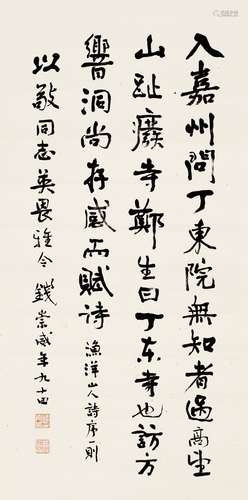 入嘉州問丁東院無知者過高生
山趾癈寺鄭生曰丁東寺也訪方
響洞尚存感而賦詩 漁洋山人詩序一則
以敬同志英畏雅令 錢崇威年九十四